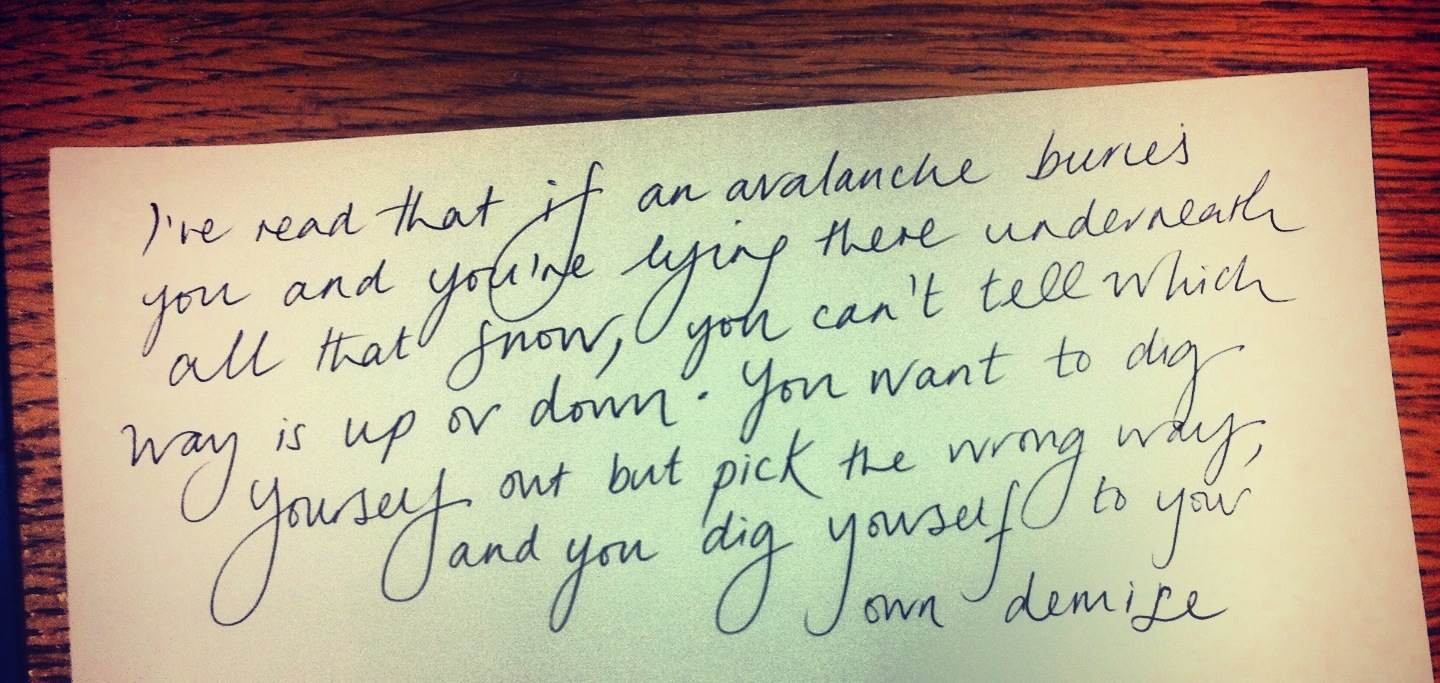 I've read that if an avalanche buries
you and you're lying there underneath
all that snow, you can't tell which
way is up or down. You want to dig
yourself out but pick the wrong way,
and you dig yourself to your
own demise